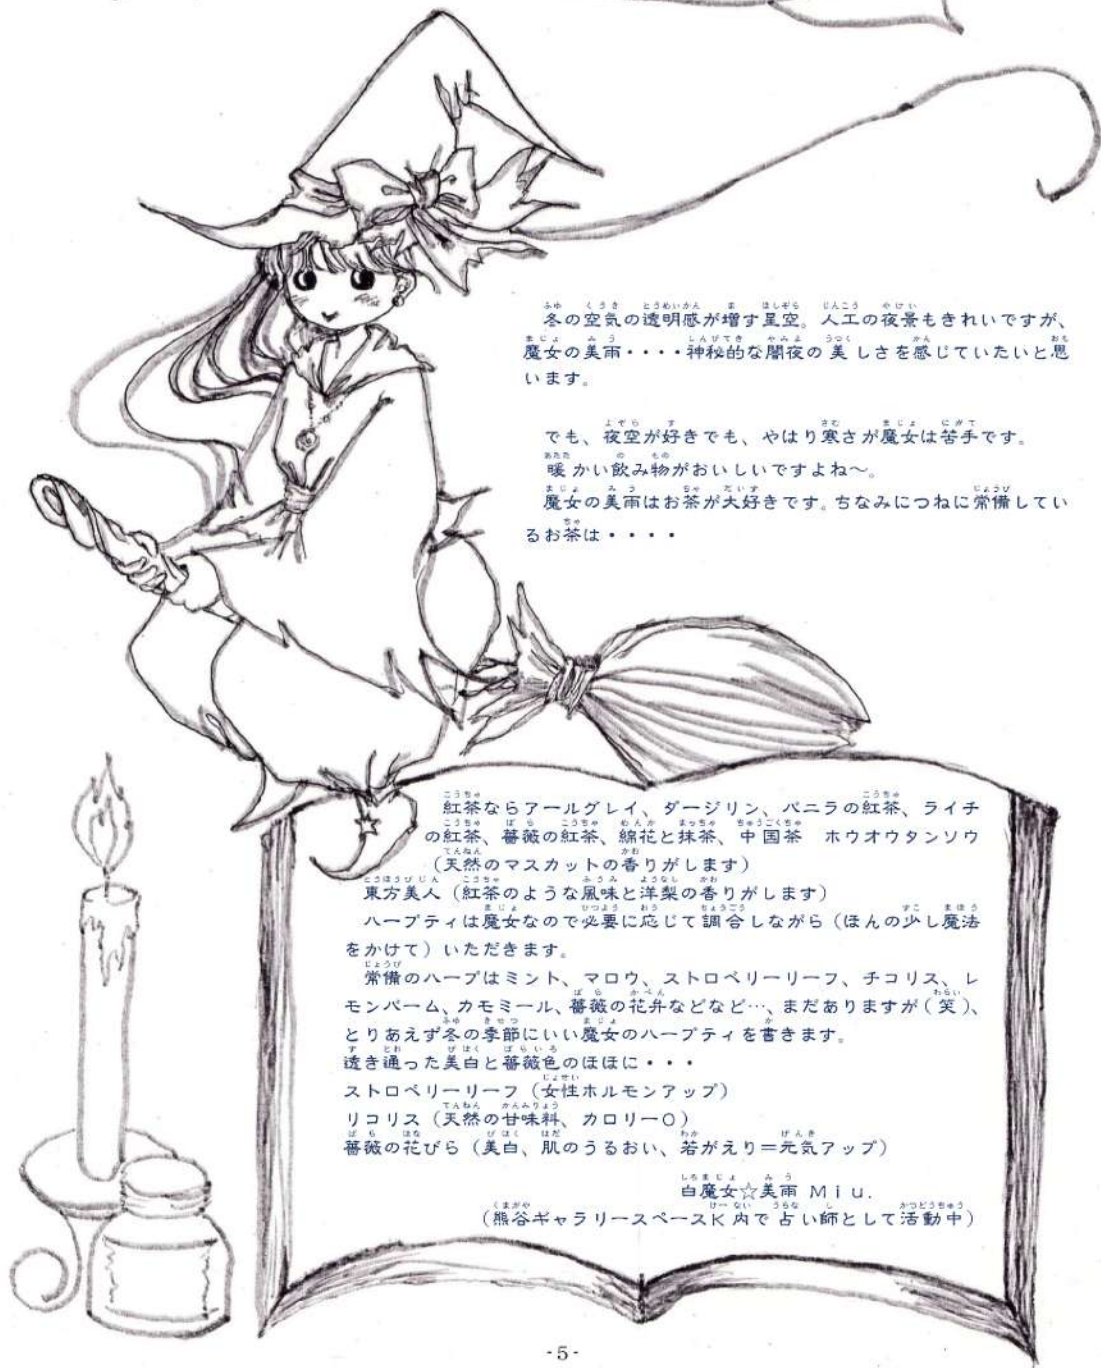 冬の空気の透明感が増す星空。人工の夜景もきれいですが、
魔女の美雨・・・・神秘的な闇夜の美しさを感じていたいと思
います。
でも、夜空が好きでも、やはり寒さが魔女は苦手です。
暖かい飲み物がおいしいですよね〜。
魔女の美雨はお茶が大好きです。ちなみにつねに常備してい
るお茶は・・・・
紅茶ならアールグレイ、ダージリン、バニラの紅茶、ライチ
の紅茶、薔薇の紅茶、綿花と抹茶、中国茶　ホウオウタンソウ
（天然のマスカットの香りがします）
東方美人（紅茶のような風味と洋梨の香りがします）
ハーブティは魔女なので必要に応じて調合しながら（ほんの少し魔法
をかけて）いただきます。
常備のハーブはミント、マロウ、ストロベリーリーフ、チコリス、レ
モンバーム、カモミール、薔薇の花弁などなど…、まだありますが（笑）、
とりあえず冬の季節にいい魔女のハーブティを書きます。
透き通った美白と薔薇色のほほに・・・
ストロベリーリーフ（女性ホルモンアップ）
リコリス（天然の甘味料、カロリー０）
薔薇の花びら（美白、肌のうるおい、若がえり＝元気アップ）
白魔女☆美雨 Ｍｉｕ．
（熊谷ギャラリースペースＫ内で占い師として活動中）
- 5 -